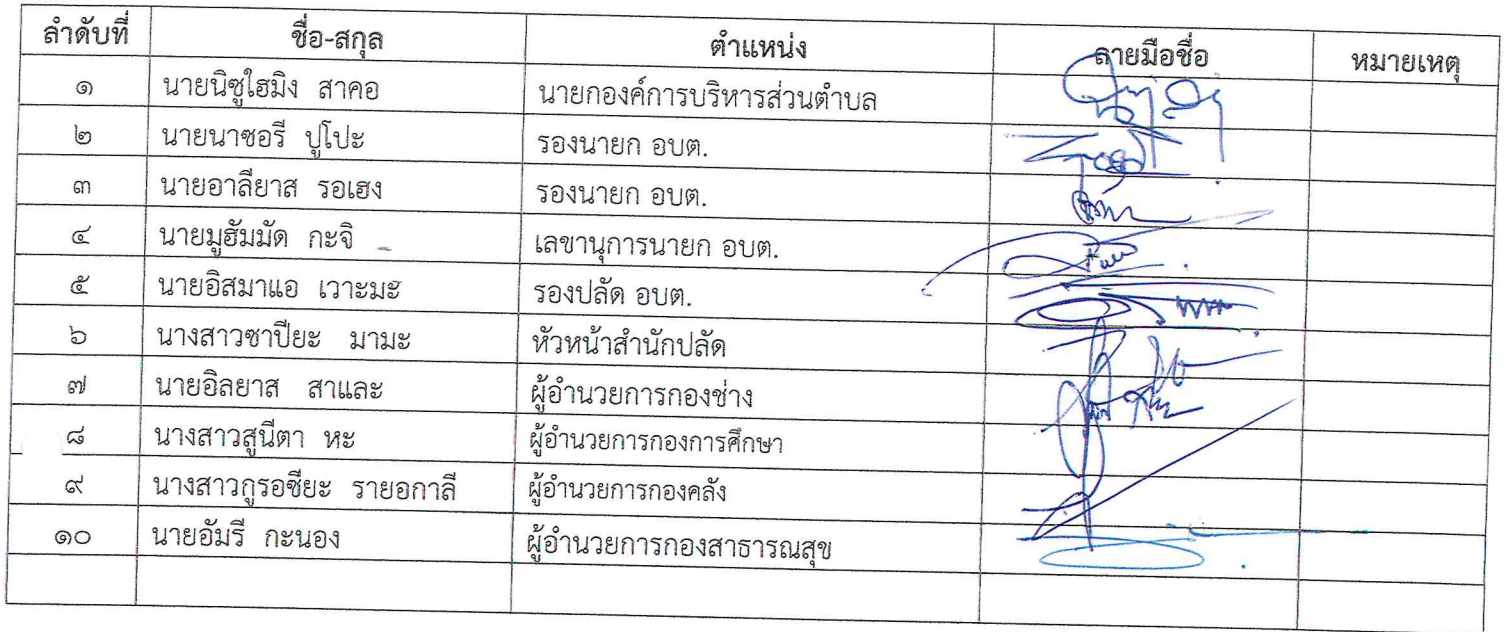 ลำดับที่ ชื่อ-สกุล ตำแหน่ง ลายมือชื่อ หมายเหตุ
๑ นายนิซูไฮมิง สาคอ นายกองค์การบริหารส่วนตำบล
๒ นายนาซอรี ปูโปะ รองนายก อบต.
๓ นายอาลียาส รอเฮง รองนายก อบต.
๔ นายมูฮัมมัด กะจิ เลขานุการนายก อบต.
๕ นายอิสมาแอ เวาะมะ รองปลัด อบต.
๖ นางสาวซาปียะ มามะ หัวหน้าสำนักปลัด
๗ นายอิลยาส สาและ ผู้อำนวยการกองช่าง
๘ นางสาวสูนีตา หะ ผู้อำนวยการกองการศึกษา
๙ นางสาวกูรอซียะ รายอกาลี ผู้อำนวยการกองคลัง
๑๐ นายอัมรี กะนอง ผู้อำนวยการกองสาธารณสุข